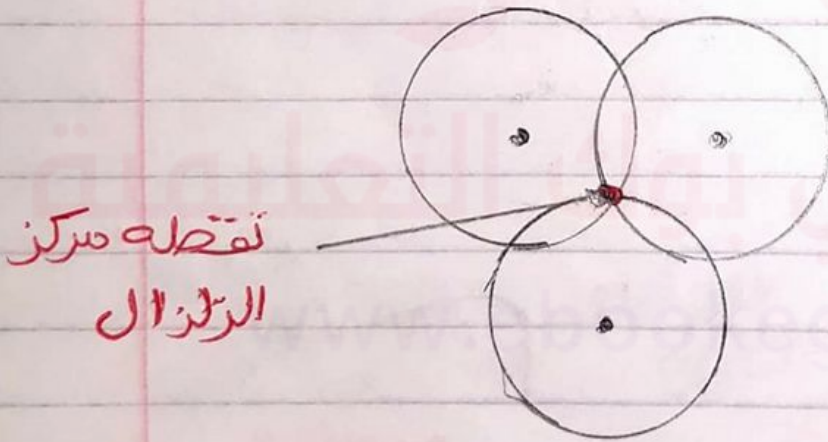 نقطه مركز
الزلزال